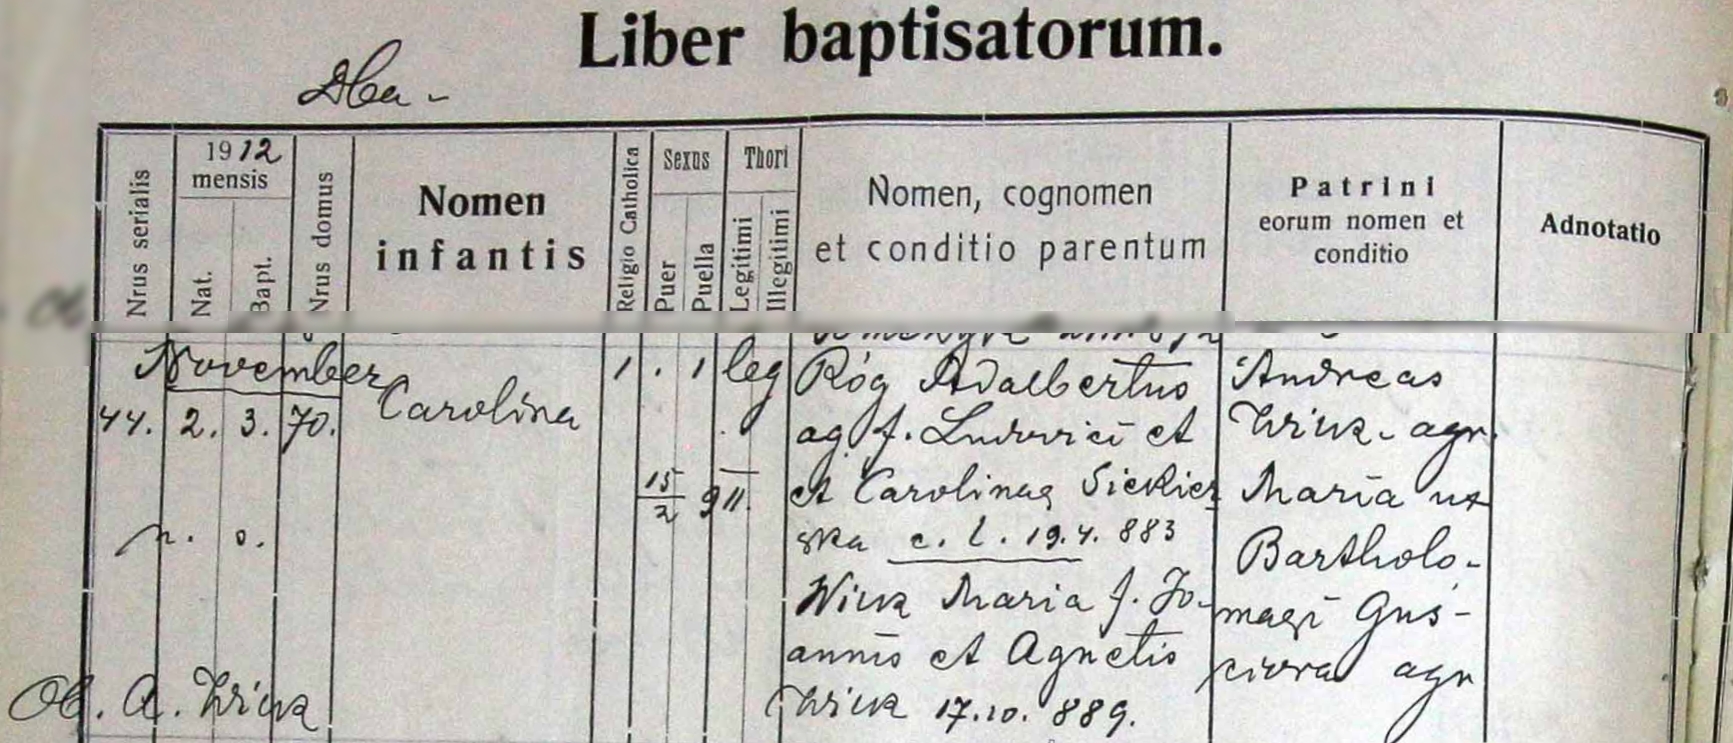 Liber baptisatorum.
Nrus serialis
1912
mensis
Nat.
Bapt.
Nrus domus
Nomen
infantis
Religio Catholica
Sexus
Puer
Puella
Thori
Legitimi
Illegitimi
Nomen, cognomen
et conditio parentum
Patrini
eorum nomen et
conditio
Adnotatio
November
44. 2. 3. 70. Carolina
1 . 1 leg
15/2 9 11.
n. o.
Róg Adalbertus
ag f. Ludovici et
et Carolinae Siekier
ska c. l. 19.4.883
Wiuk Maria f. Jo-
annis et Agnetis
17.10.889.
Andreas
agr.
Maria ux
Bartholo-
maei Gus-
ciora agr
Ob. A.